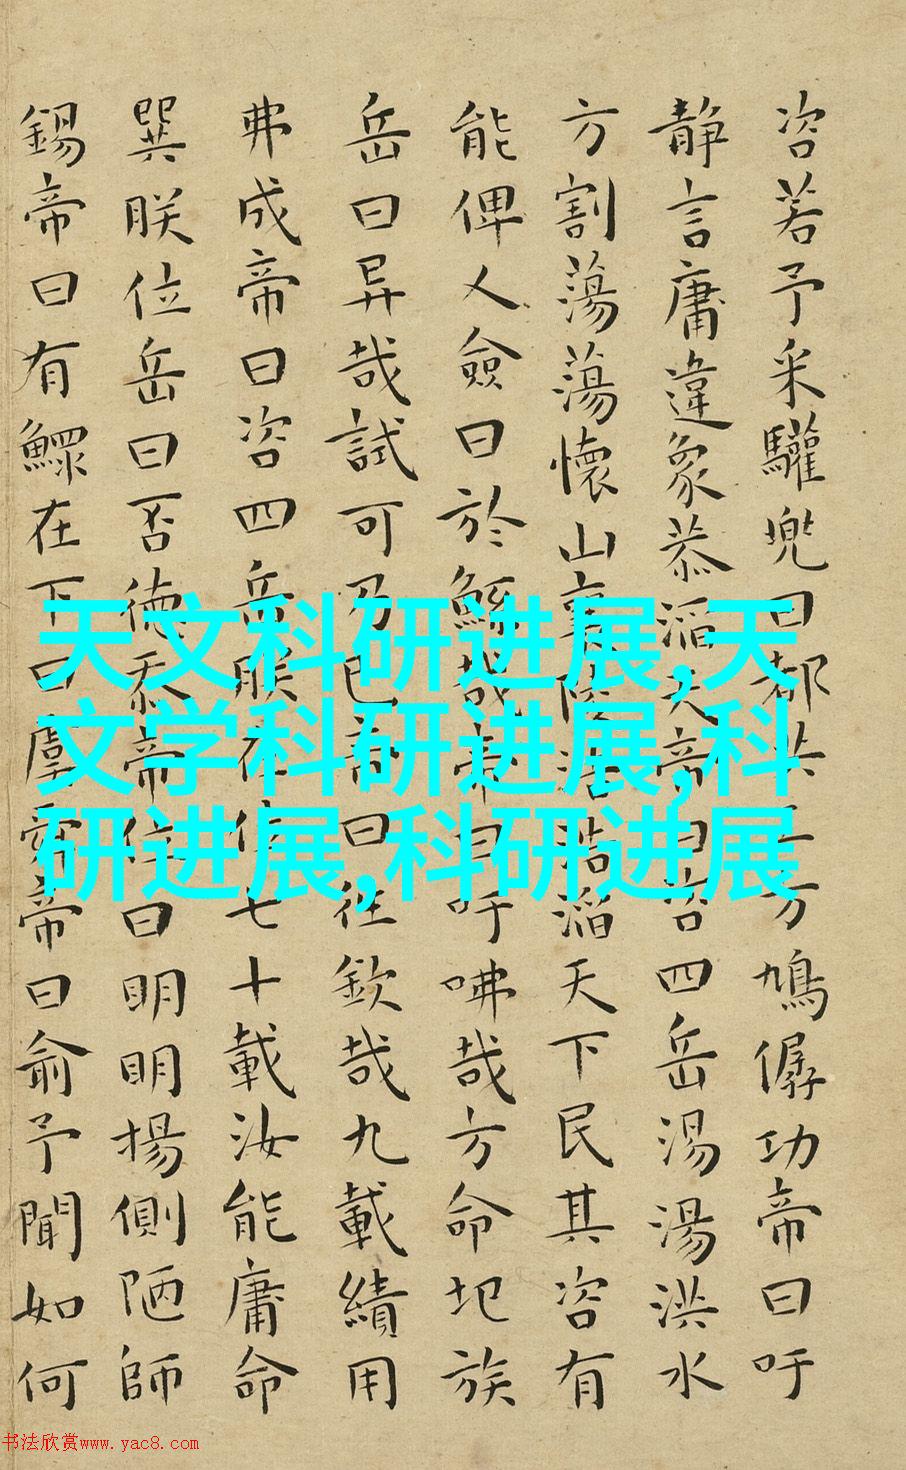 咨若予采驩兜曰都共工方鳩僝功帝曰吁
静言庸違象恭滔天帝曰咨四岳湯湯洪水
方割蕩蕩懷山襄陵浩浩滔天下民其咨有
能俾乂僉曰於鯀哉帝曰吁咈哉方命圮族
岳曰异哉試可乃已帝曰往欽哉九載績用
弗成帝曰咨四岳朕在位七十載汝能庸命
巽朕位岳曰否德忝帝位曰明明揚側陋師
錫帝曰有鰥在下曰虞舜帝曰俞予聞如何
天文科研进展,天
文学科研进展,科
研进展,科研进展
书法欣赏www.yac8.com